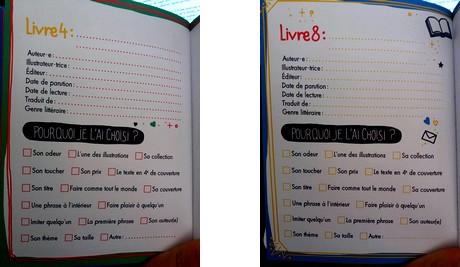 Livre 4 :
Auteur·e :
Illustrateur·trice :
Éditeur :
Date de parution :
Date de lecture :
Traduit de :
Genre littéraire :
POURQUOI JE L'AI CHOISI ?
Son odeur L'une des illustrations Sa collection
Son toucher Son prix Le texte en 4e de couverture
Son titre Faire comme tout le monde Sa couverture
Une phrase à l'intérieur Faire plaisir à quelqu'un
Imiter quelqu'un La première phrase Son auteur(e)
Son thème Sa taille Autre :
Livre 8 :
Auteur·e :
Illustrateur·trice :
Éditeur :
Date de parution :
Date de lecture :
Traduit de :
Genre littéraire :
POURQUOI JE L'AI CHOISI ?
Son odeur L'une des illustrations Sa collection
Son toucher Son prix Le texte en 4e de couverture
Son titre Faire comme tout le monde Sa couverture
Une phrase à l'intérieur Faire plaisir à quelqu'un
Imiter quelqu'un La première phrase Son auteur(e)
Son thème Sa taille Autre :